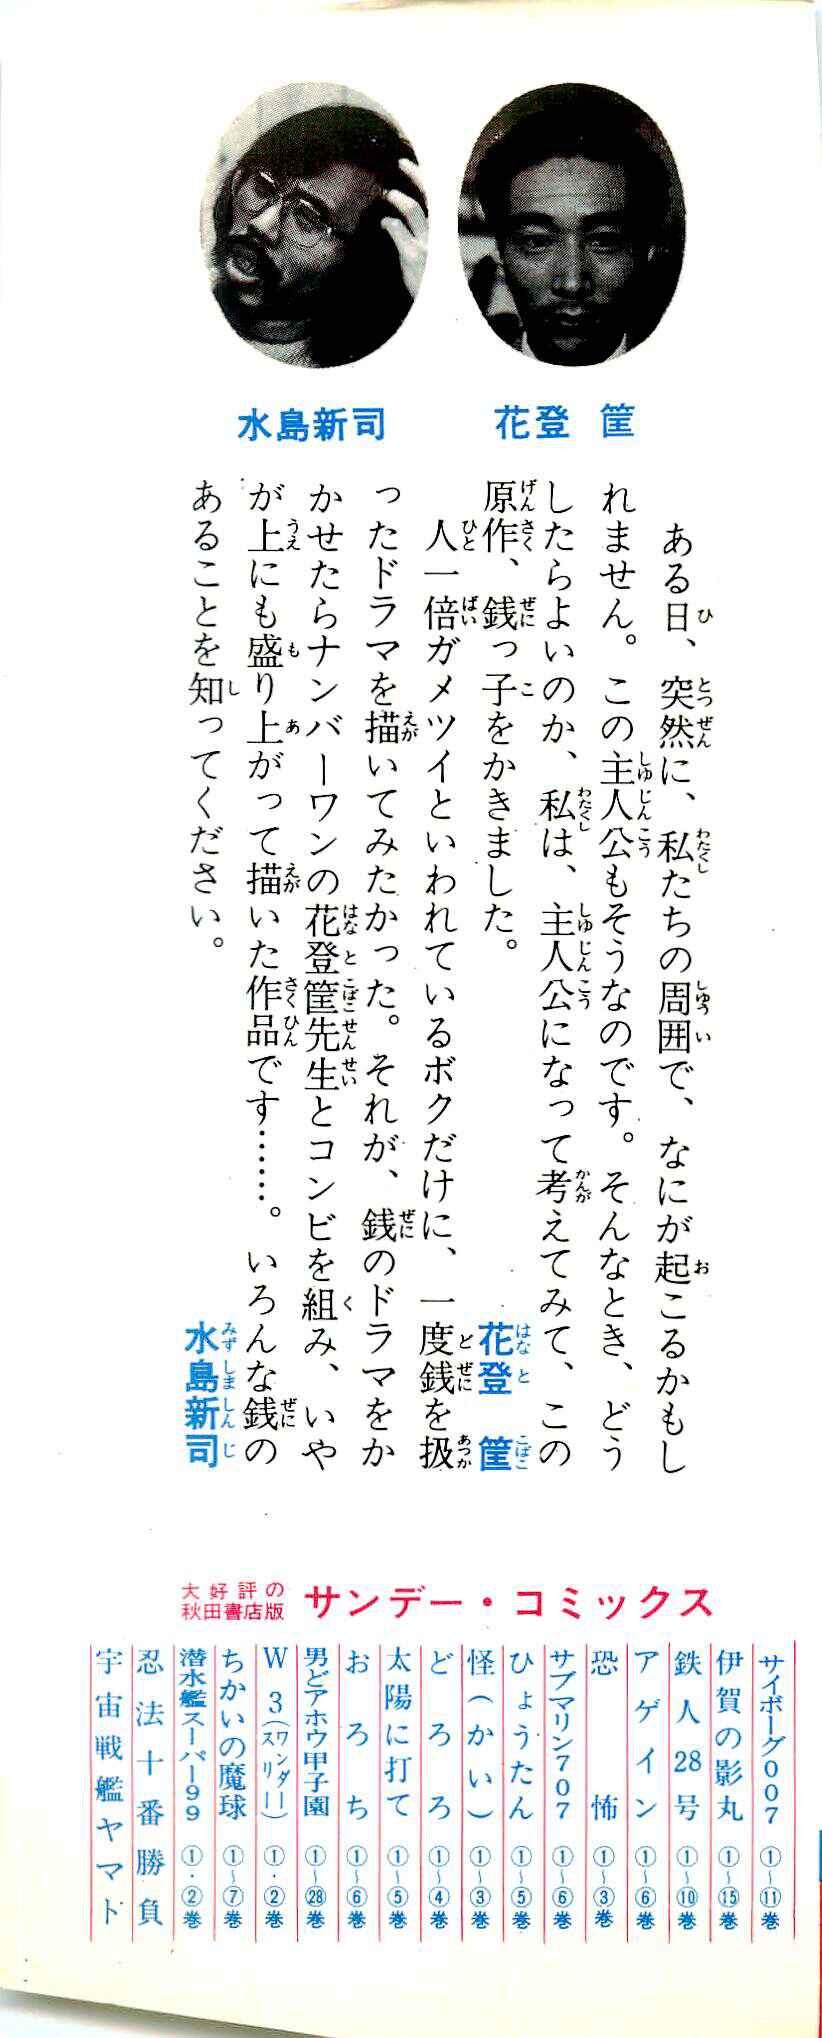 花登 筐
水島新司
ある日、突然に、私たちの周囲で、なにが起こるかもし
れません。この主人公もそうなのです。そんなとき、どう
したらよいのか、私は、主人公になって考えてみて、この
原作、銭っ子をかきました。
花登 筐
人一倍ガメツイといわれているボクだけに、一度銭を扱
ったドラマを描いてみたかった。それが、銭のドラマをか
かせたらナンバーワンの花登筐先生とコンビを組み、いや
が上にも盛り上がって描いた作品です……。いろんな銭の
あることを知ってください。
水島新司
大好評の
秋田書店版
サンデー・コミックス
サイボーグ007 ①~⑪巻
伊賀の影丸 ①~⑮巻
鉄人28号 ①~⑩巻
アゲイン ①~⑥巻
恐怖 ①~③巻
サブマリン707 ①~⑥巻
ひょうたん ①~⑤巻
怪(かい) ①~③巻
どろろ ①~④巻
太陽に打て ①~⑤巻
おろち ①~⑥巻
男どアホウ甲子園 ①~㉘巻
W3(ワンダースリー) ①・②巻
ちかいの魔球 ①~⑦巻
潜水艦スーパー99 ①・②巻
忍法十番勝負
宇宙戦艦ヤマト